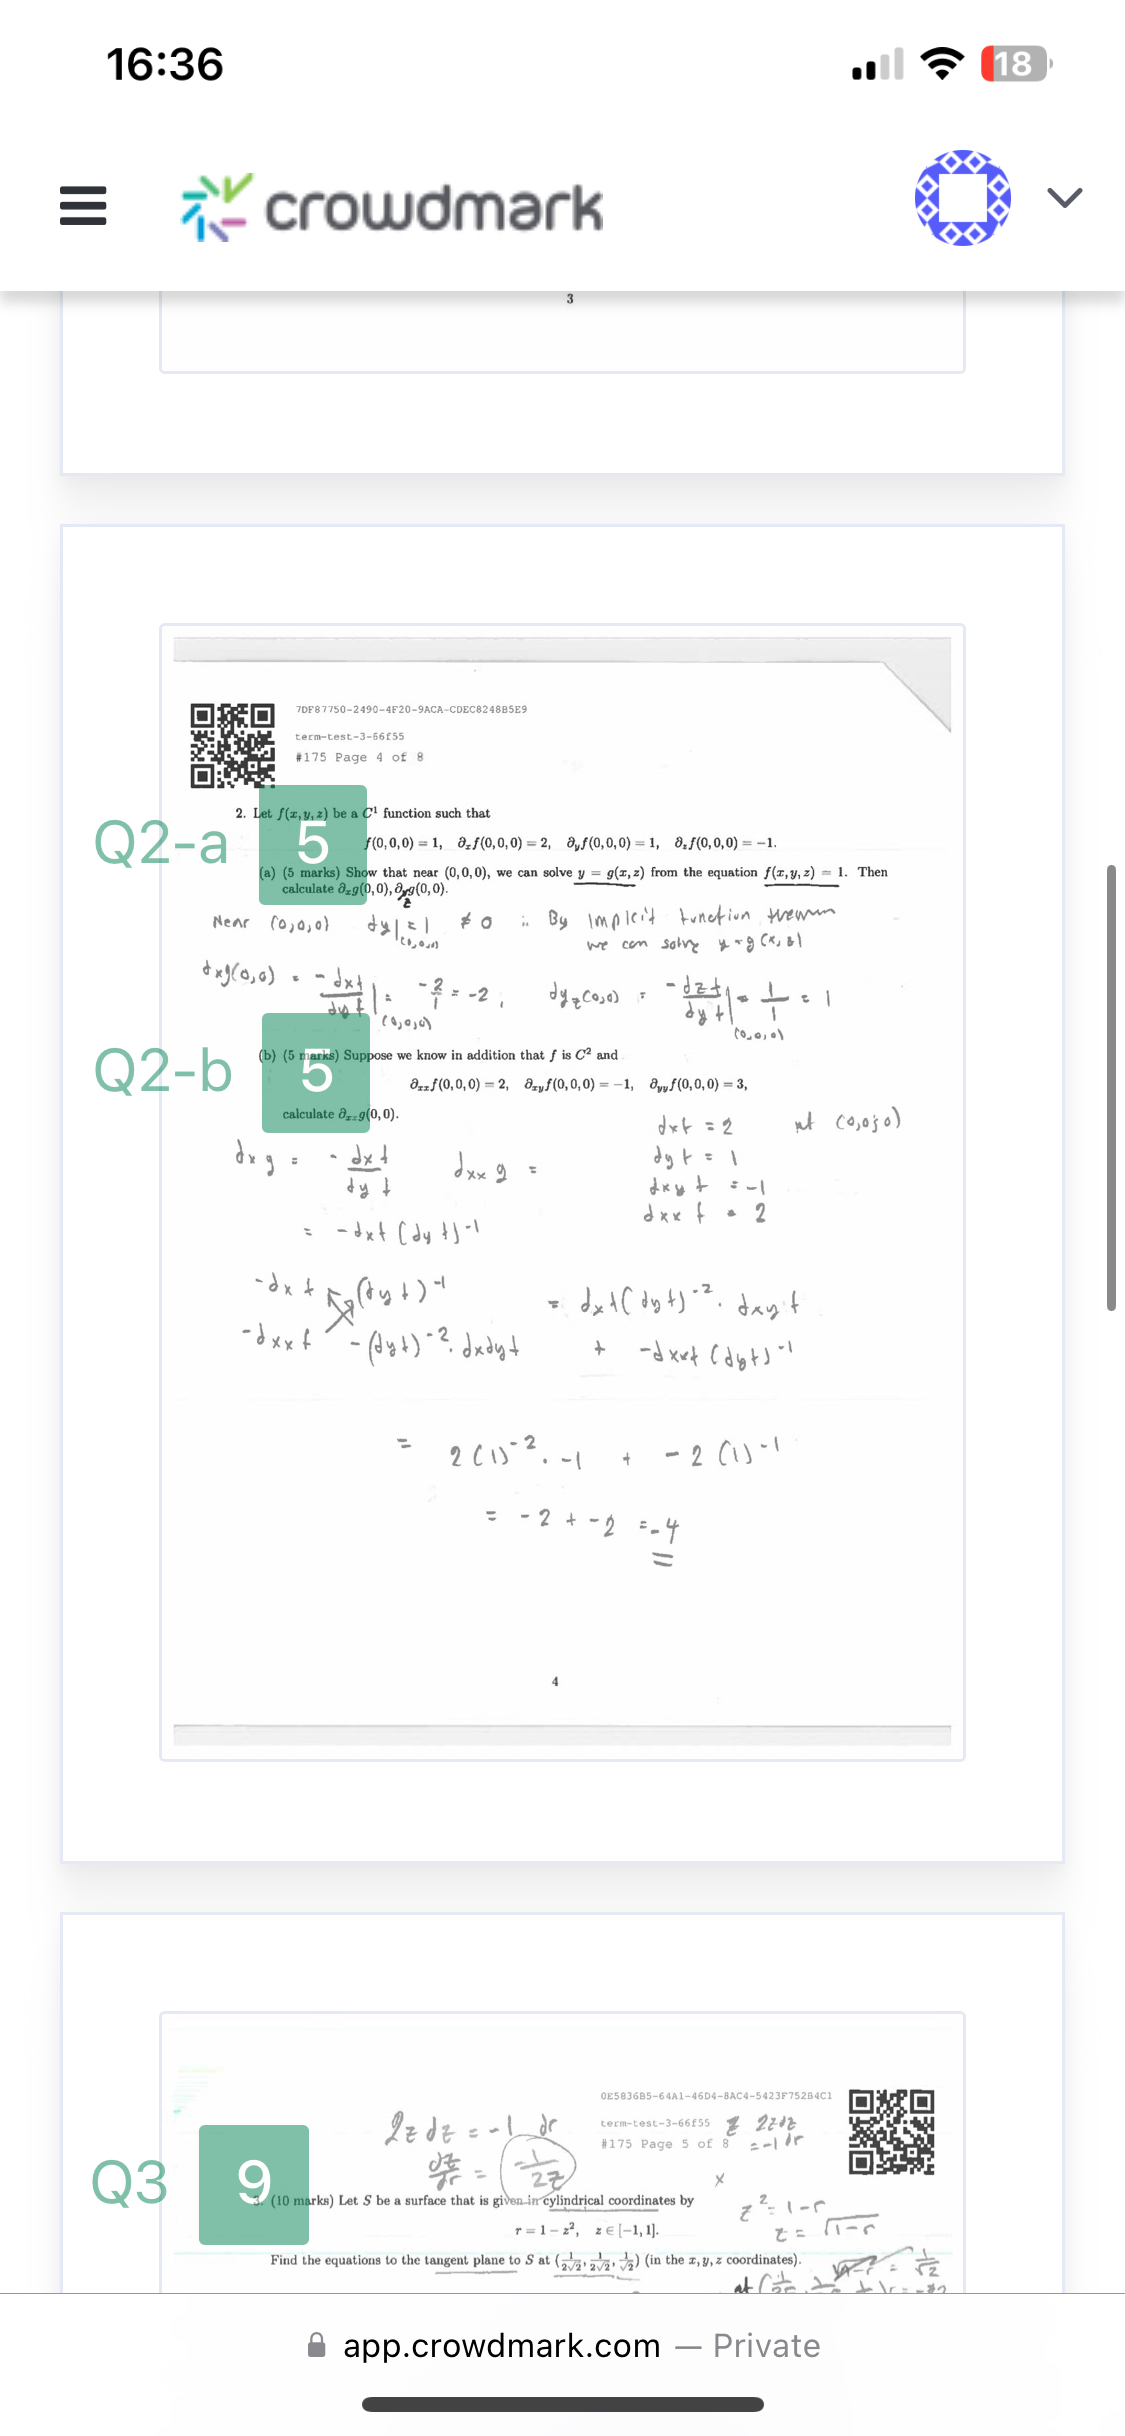 16:36
18
crowdmark
3
7DF87750-2490-4F20-9ACA-CDEC8248B5E9
term-test-3-66f55
#175 Page 4 of 8
Q2-a 5
2. Let f(x, y, z) be a C¹ function such that
f(0,0,0) = 1, ∂ₓf(0,0,0) = 2, ∂ᵧf(0,0,0) = 1, ∂_z f(0,0,0) = −1.
(a) (5 marks) Show that near (0,0,0), we can solve y = g(x, z) from the equation f(x, y, z) = 1. Then
calculate ∂ₓg(0,0), ∂_z g(0,0).
Near (0,0,0) ∂y|(0,0,0) = 1 ≠ 0 ∴ By implicit function theorem
we can solve y = g(x, z)
∂xg(0,0) = -∂xf/∂yf |(0,0,0) = -2/1 = -2, ∂y_z(0,0) = -∂zf/∂yf |(0,0,0) = 1/1 = 1
Q2-b 5
(b) (5 marks) Suppose we know in addition that f is C² and
∂ₓₓf(0,0,0) = 2, ∂ₓᵧf(0,0,0) = −1, ∂ᵧᵧf(0,0,0) = 3,
calculate ∂ₓₓg(0,0).
∂xf = 2 at (0,0,0)
∂yf = 1
∂xyf = -1
∂xxf = 2
∂xg = -∂xf/∂yf ∂xxg =
= -∂xf (∂yf)^-1
-∂xf (∂yf)^-1
-∂xxf -(∂yf)^-2 . ∂x∂yf
= ∂xf(∂yf)^-2 . ∂xyf
+ -∂xxf (∂yf)^-1
= 2(1)^-2 . -1 + -2(1)^-1
= -2 + -2 = -4
4
0E5836B5-64A1-46D4-8AC4-5423F752B4C1
term-test-3-66f55
#175 Page 5 of 8
2z dz = -1 dr
dz/dr = -1/2z
z 2zdz
= -1 dr
z² = 1-r
z = √1-r
Q3 9
3. (10 marks) Let S be a surface that is given in cylindrical coordinates by
r = 1 − z², z ∈ [−1, 1].
Find the equations to the tangent plane to S at (1/2√2, 1/2√2, 1/√2) (in the x, y, z coordinates).
app.crowdmark.com — Private